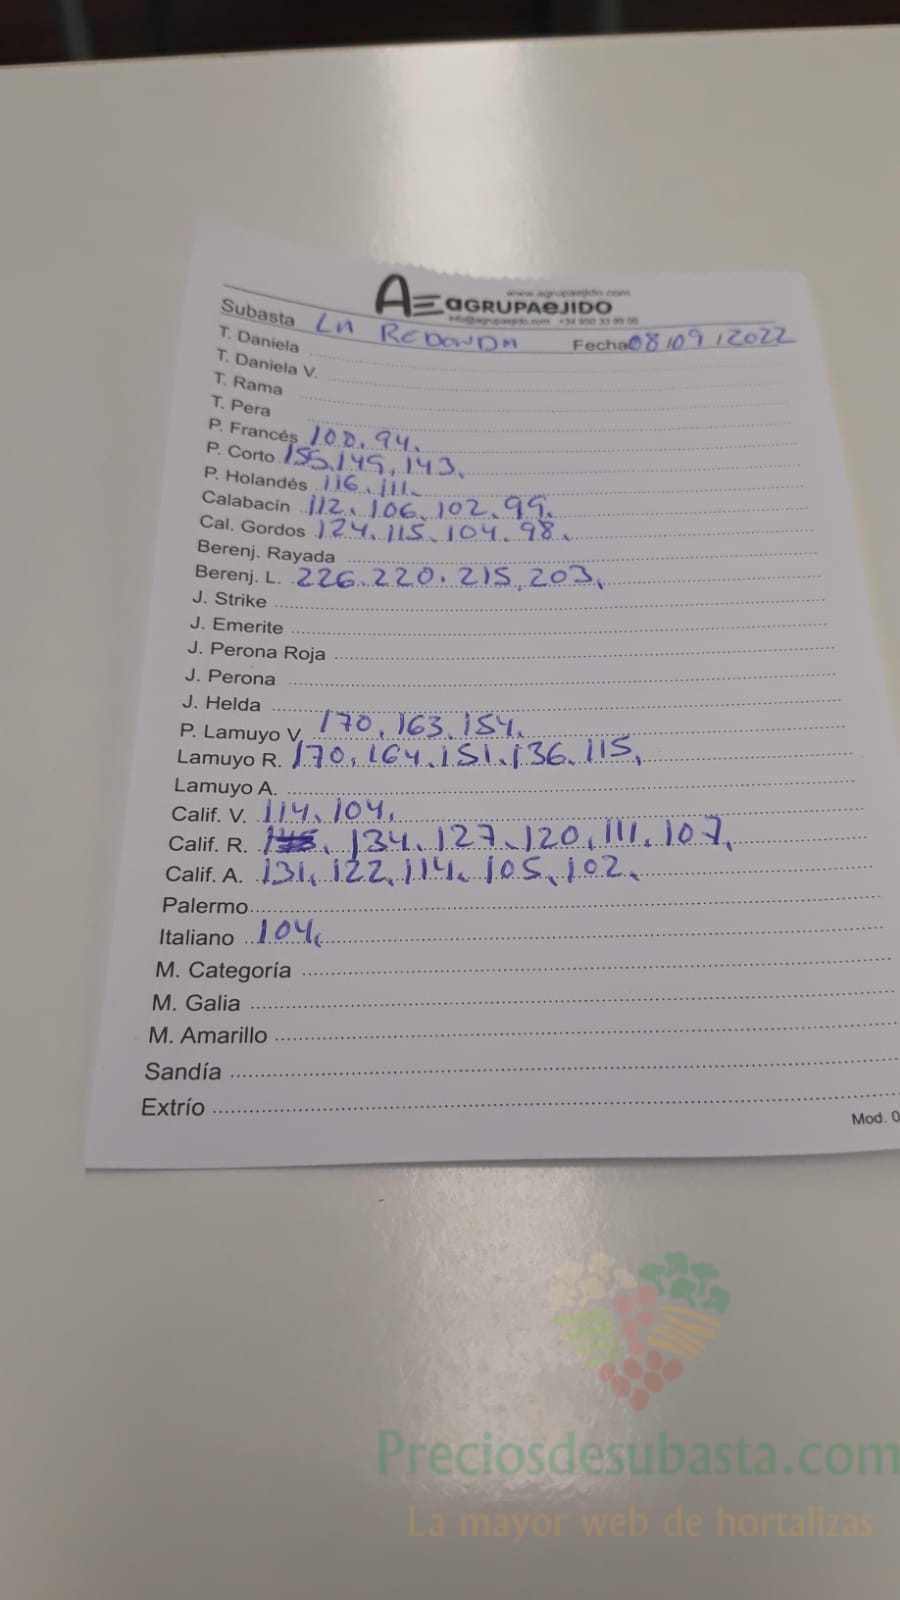 www.agrupaejido.com
AE aGRUPAeJIDO
info@agrupaejido.com +34 950 33 99 00
Subasta LA REDONDA Fecha 08/09/2022
T. Daniela
T. Daniela V.
T. Rama
T. Pera
P. Francés 100. 94.
P. Corto 155. 149, 143.
P. Holandés 116. 111.
Calabacín 112. 106. 102. 99.
Cal. Gordos 124. 115. 104. 98.
Berenj. Rayada
Berenj. L. 226. 220. 215, 203,
J. Strike
J. Emerite
J. Perona Roja
J. Perona
J. Helda
P. Lamuyo V. 170, 163. 154.
Lamuyo R. 170, 164. 151. 136. 115,
Lamuyo A.
Calif. V. 114. 104,
Calif. R. 134. 127. 120, 111. 107,
Calif. A. 131, 122, 114. 105, 102.
Palermo
Italiano 104,
M. Categoría
M. Galia
M. Amarillo
Sandía
Extrío
Mod. 0
Preciosdesubasta.com
La mayor web de hortalizas